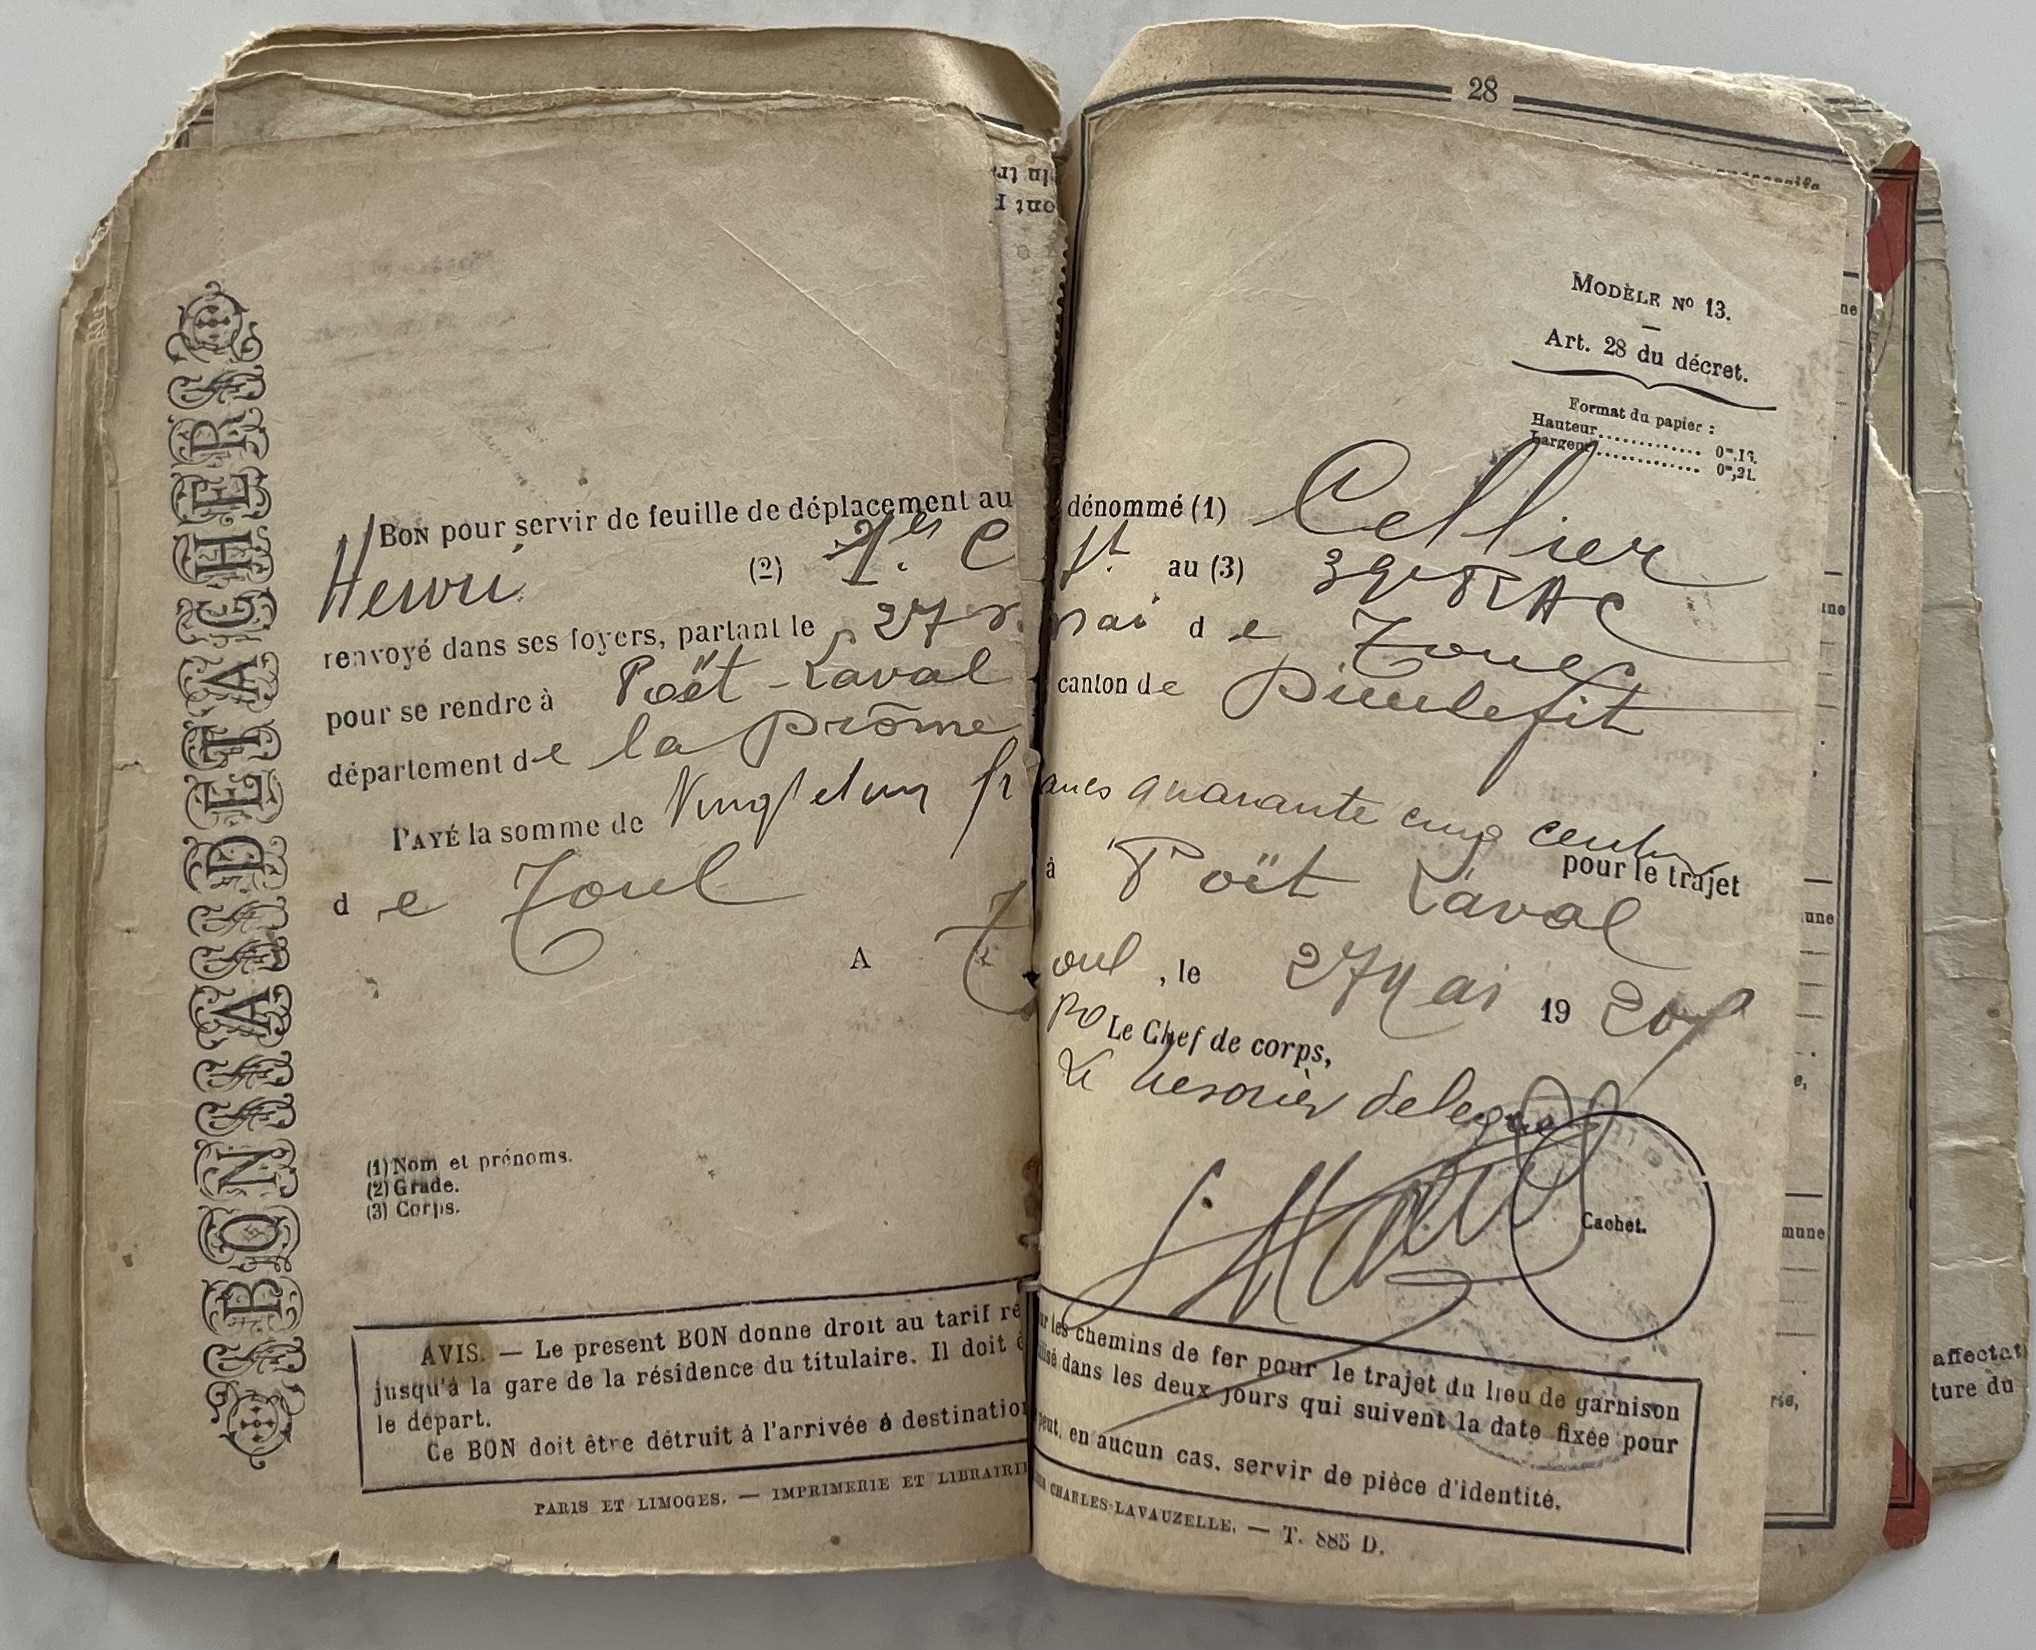 28
MODÈLE Nº 13.
Art. 28 du décret.
Format du papier :
Hauteur............ 0m,13.
Largeur............ 0m,21.
BONS A DETACHER
BON pour servir de feuille de déplacement au dénommé (1) Cellier
Henri (2) au (3) 39e RAC
renvoyé dans ses foyers, partant le 27 mai de Toul
pour se rendre à Poët-Laval canton de Dieulefit
département de la Drôme
PAYÉ la somme de Vingt et un francs quarante cinq pour le trajet
de Toul à Poët Laval
A Toul, le 27 Mai 1920
PO Le Chef de corps,
Le tresorier delegué
Cachet.
(1) Nom et prénoms.
(2) Grade.
(3) Corps.
AVIS. — Le présent BON donne droit au tarif ré ur les chemins de fer pour le trajet du lieu de garnison
jusqu'à la gare de la résidence du titulaire. Il doit ê ilisé dans les deux jours qui suivent la date fixée pour
le départ.
Ce BON doit être détruit à l'arrivée à destination peut, en aucun cas, servir de pièce d'identité.
PARIS ET LIMOGES. — IMPRIMERIE ET LIBRAIRIE CHARLES-LAVAUZELLE. — T. 885 D.
ne
une
mune
affectat
ture du